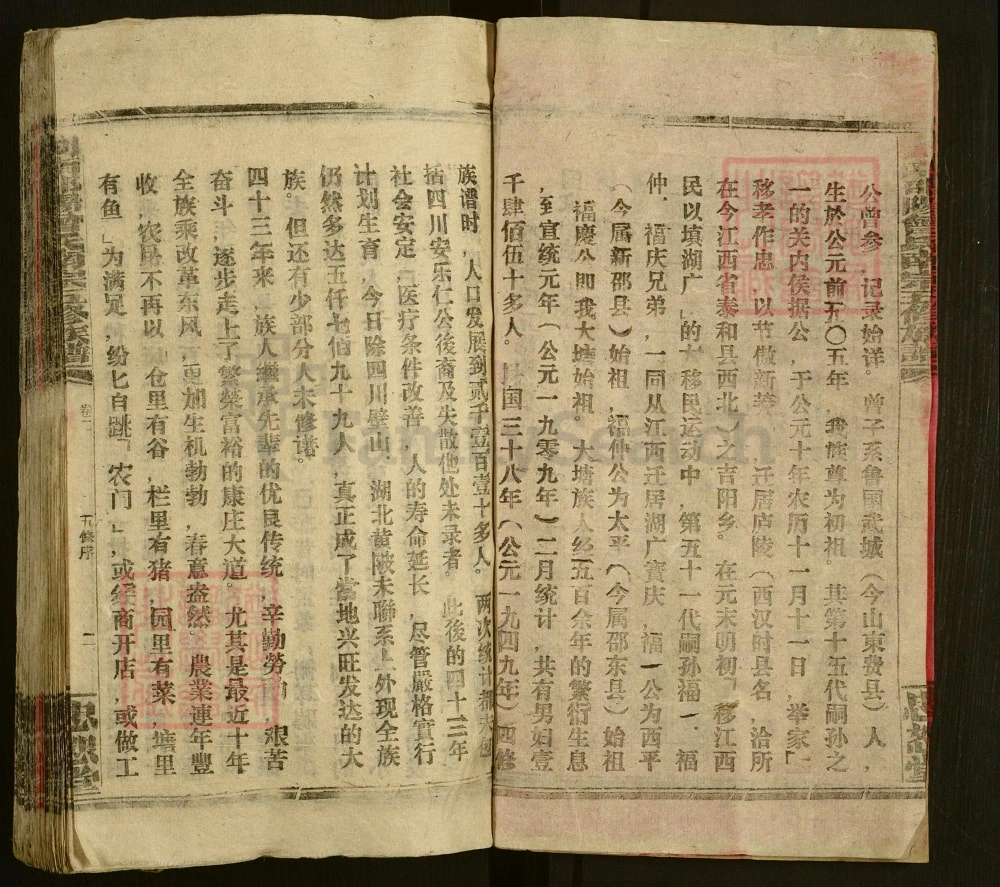 公曾参，记录始详。曾子系鲁国武城（今山東费县）人，
生於公元前五〇五年，我族尊为初祖。其第十五代嗣孙之
一的关内侯据公，于公元十年农历十一月十一日，举家「
移孝作忠，以节傲新莽」迁居庐陵（西汉时县名，治所
在今江西省泰和县西北）之吉阳乡。在元末明初「移江西
民以填湖广」的大移民运动中，第五十一代嗣孙福一、福
仲、福庆兄弟，一同从江西迁居湖广寳庆，福一公为西平
（今属新邵县）始祖，福仲公为太平（今属邵东县）始祖
，福慶公即我大塘始祖。大塘族人经五百余年的繁衍生息
，至宣统元年（公元一九零九年）二月统计，共有男妇壹
千肆佰伍十多人。民国三十八年（公元一九四九年）四修
族谱时，人口发展到贰千壹百壹十多人。两次统计都未包
括四川安乐仁公後裔及失散他处未录者。此後的四十三年
社会安定，医疗条件改善，人的寿命延长，尽管严格实行
计划生育，今日除四川壁山、湖北黄陂未聯系上外现全族
仍然多达五仟七伯九十九人，真正成了當地兴旺发达的大
族。但还有少部分人未修谱。
四十三年来，族人继承先辈的优良传统，辛勤勞动，艰苦
奋斗，逐步走上了繁榮富裕的康庄大道。尤其是最近十年
全族乘改革东风，更加生机勃勃，春意盎然，農業連年豐
收，农民不再以「仓里有谷，栏里有猪，园里有菜，塘里
有鱼」为满足，纷匕自跳「农门」，或经商开店，或做工
卷二
五修序
二
忠恕堂
忠恕堂
FamilySearch